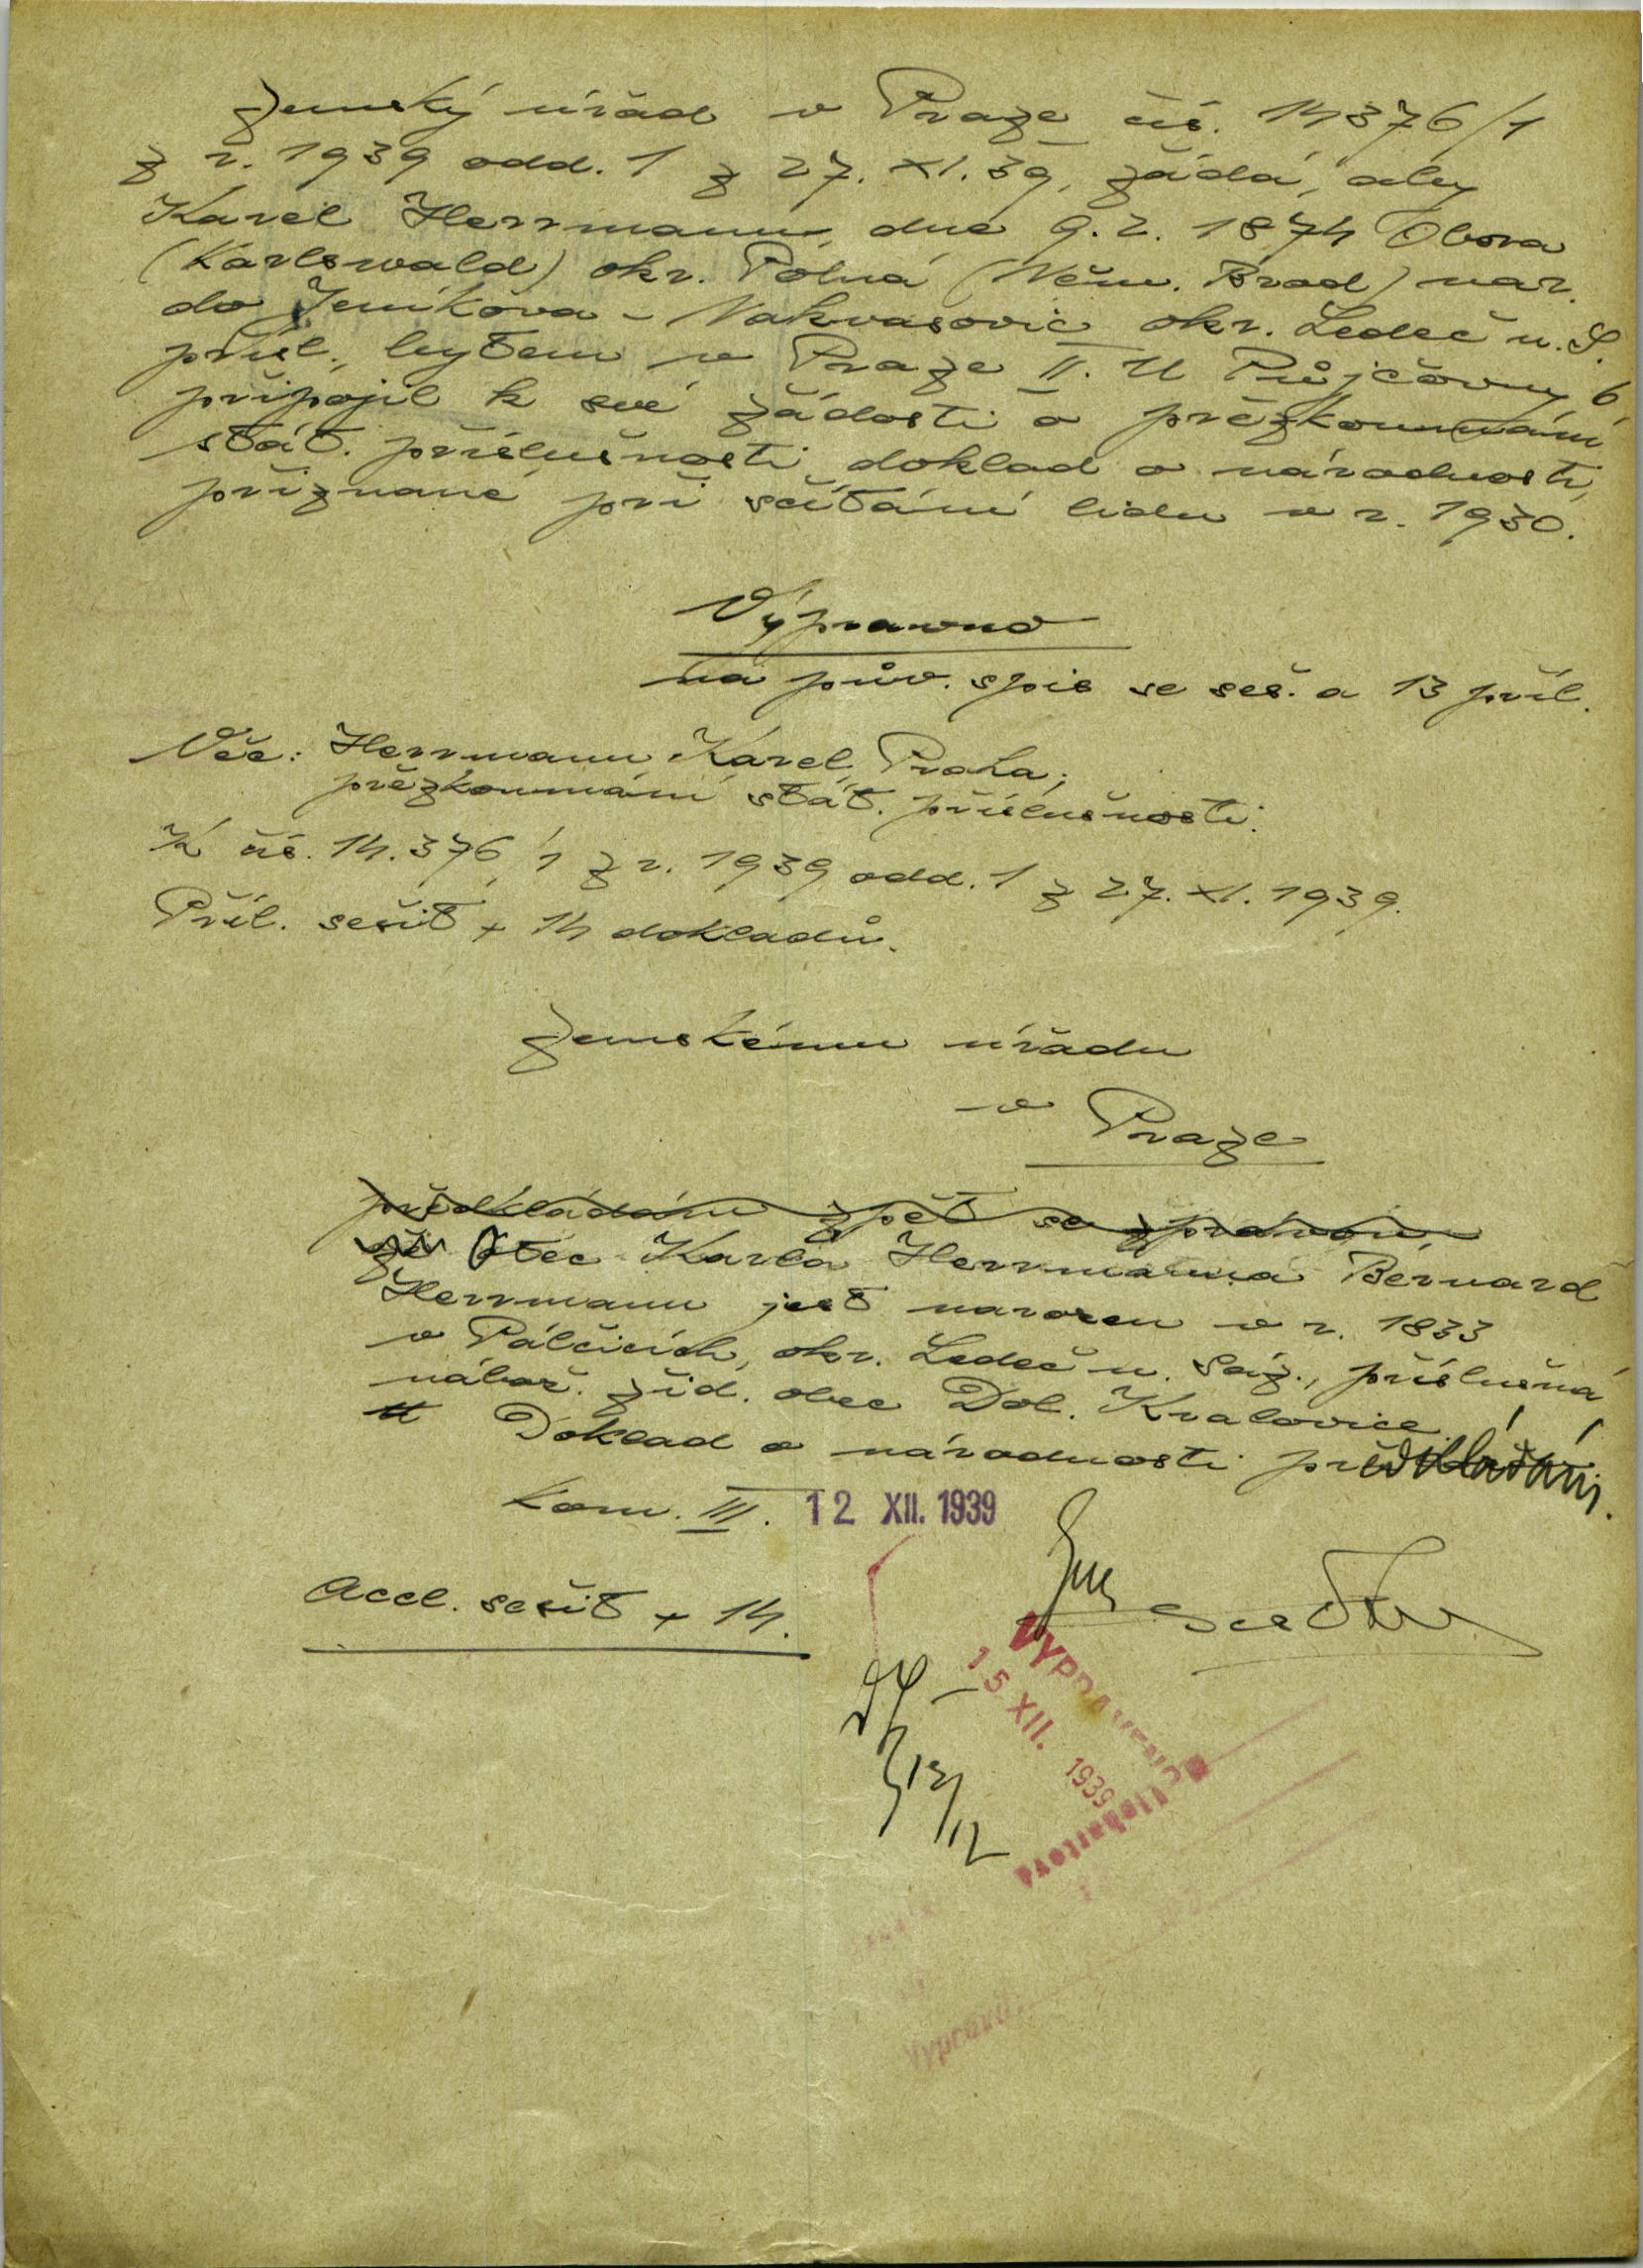 Zemský úřad v Praze čís. 14376/1
z r. 1939 odd. 1 z 27. XI. 39, žádá, aby
Karel Herrmann, dne 9. 2. 1874 Obora
(Karlswald) okr. Polná (Něm. Brod) nar.
do Jeníkova - Nakvasovic okr. Ledeč n. S.
přísl., bytem v Praze II. U Půjčovny 6,
připojil k své žádosti o přezkoumání
stát. příslušnosti doklad o národnosti,
přiznané při sčítání lidu v r. 1930.
Výpravno
na pův. spis se seš. a 13 příl.
Věc: Herrmann Karel, Praha,
přezkoumání stát. příslušnosti.
K čís. 14.376/1 z r. 1939 odd. 1 z 27. XI. 1939.
Příl. sešit + 14 dokladů.
Zemskému úřadu
v Praze
předkládám zpět se zprávou,
že Otec Karla Herrmanna Bernard
Herrmann jest narozen v r. 1833
v Pálčicích, okr. Ledeč n. Sáz., příslušná
nábož. žid. obec Dol. Kralovice.
Doklad o národnosti předkládám.
Kom. III. 12 XII. 1939
Accl. sešit + 14.
VYPRAVENO
15 XII. 1939
13/12
Vypravil: